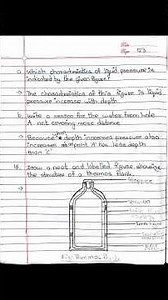 Date
Page 53
a. Which characteristics of liquid pressure is
indicated by the given figure?
→ The characteristics of this figure is liquid
pressure increase with depth
b. Write a reason for the water from hole
A not covering more distance
→ Because depth increases pressure also
increases so point A has less depth
than 'C'
10. Draw a neat and labelled figure showing
the structure of a thermos flask.
Fig: Thermos